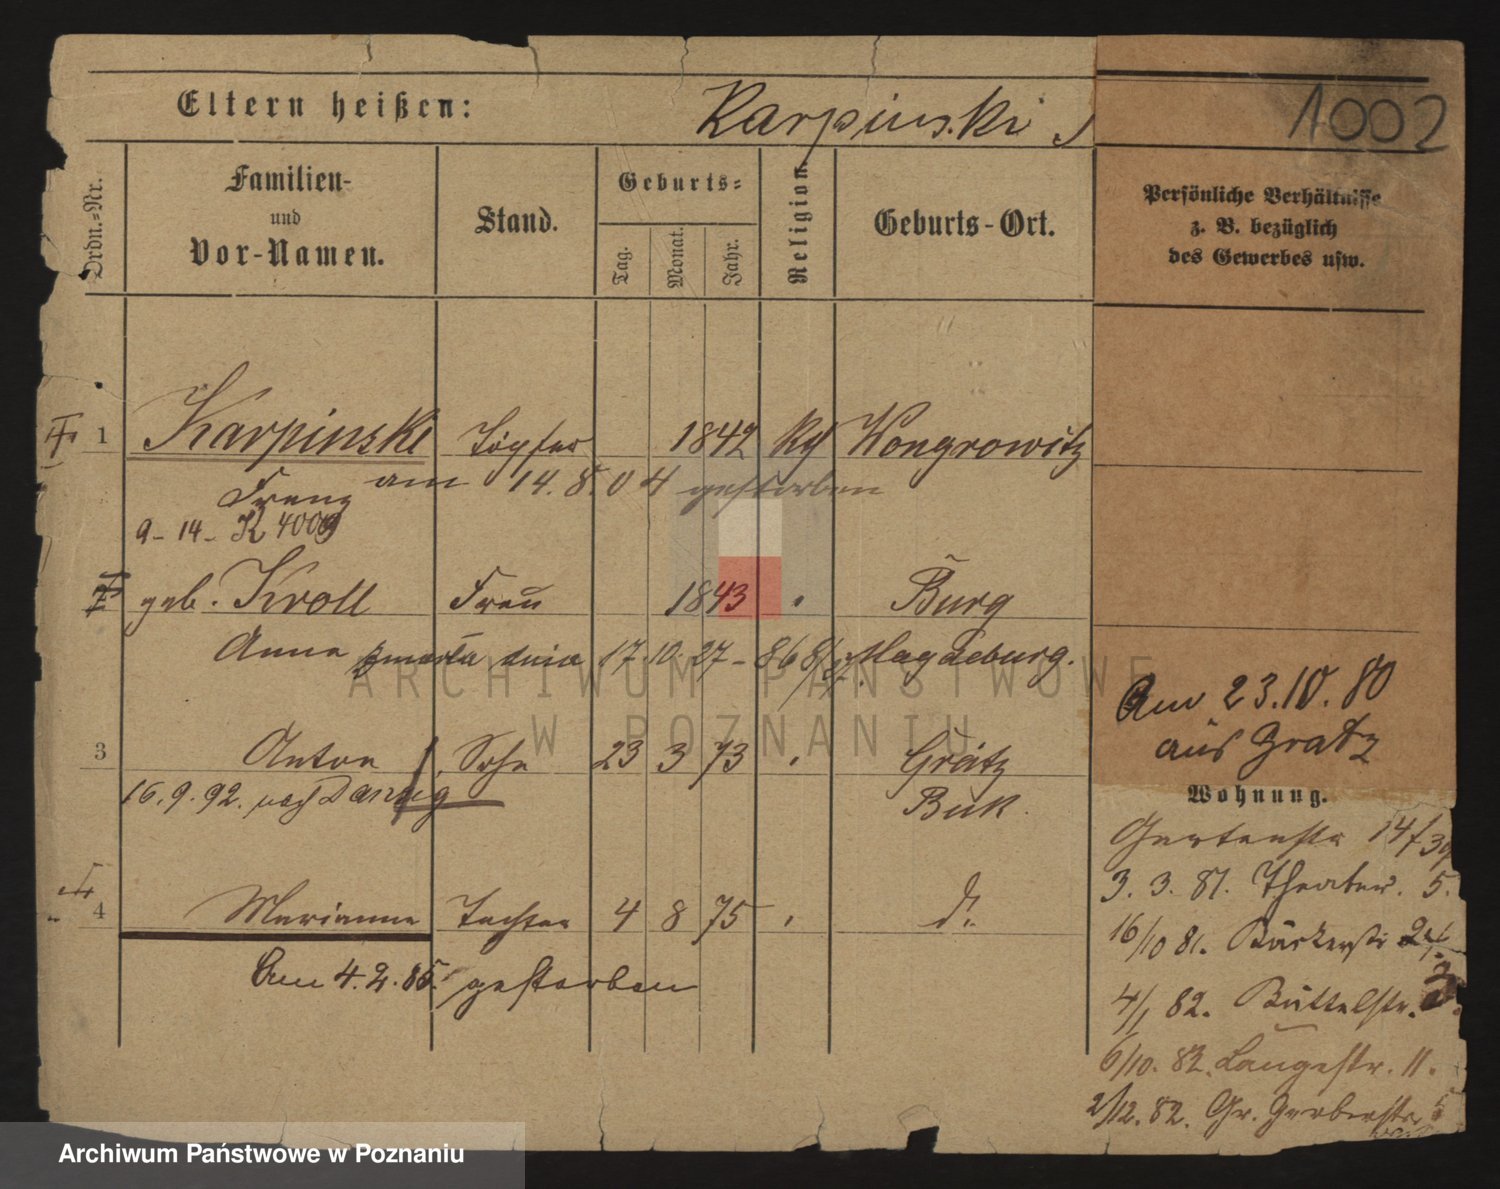 Eltern heißen: Karpinski
1002
Ordn.=Nr.
Familien-
und
Vor-Namen.
Stand.
Geburts=
Tag. Monat. Jahr.
Religion.
Geburts-Ort.
Persönliche Verhältnisse
z. B. bezüglich
des Gewerbes usw.
1 Karpinski Töpfer 1842 Wongrowitz
Franz am 14.8.04 gestorben
9-14- K
geb. Kroll Frau 1843 Burg
Anna zmarła dnia 17.10.27- Magdeburg.
Am 23.10.80
aus Grätz
3 Anton Sohn 23 3 73 Grätz
16.9.92. nach Danzig Buk.
Wohnung.
Gartenstr 14/
3. 3. 81. Theater. 5.
4 Marianne Tochter 4 8 75 d.
16/10 81. Bäckerstr
Am 4.2.85. gestorben
4/1 82. Büttelstr.
6/10. 82. Langestr. 11.
2/12. 82. Gr. Gerberstr. 5
ARCHIWUM PAŃSTWOWE
W POZNANIU
Archiwum Państwowe w Poznaniu